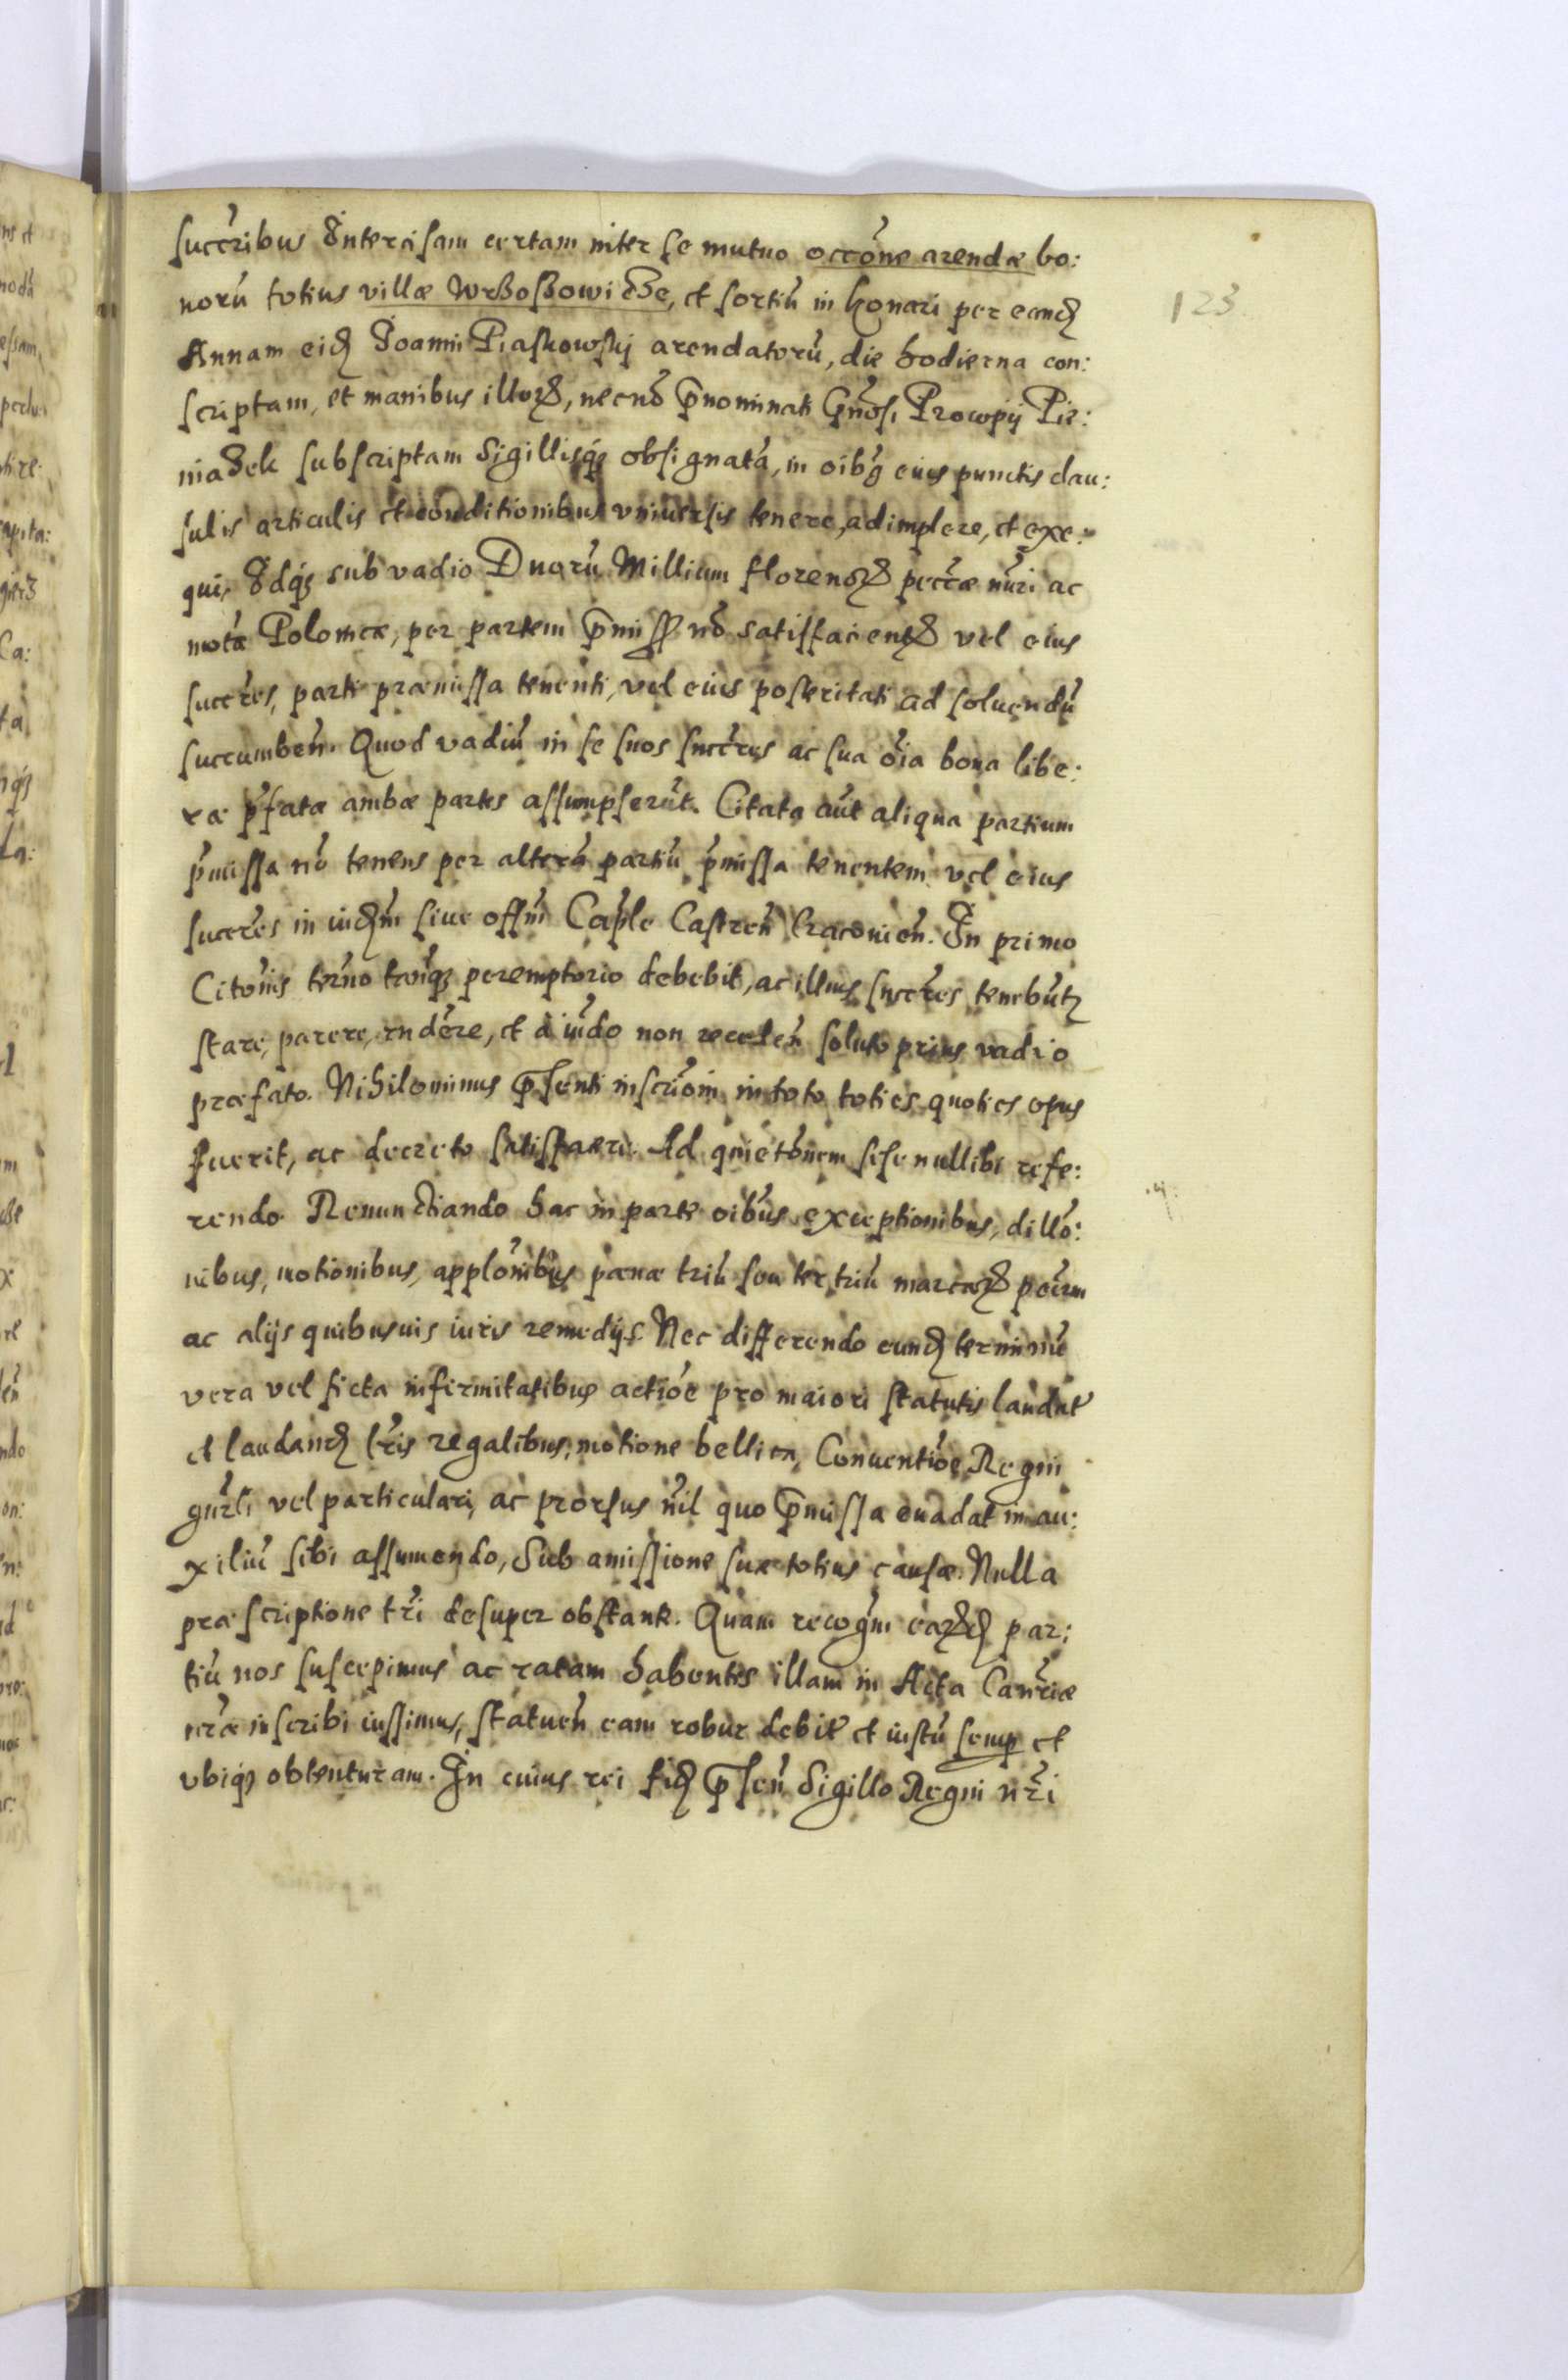 succribus Intercisam certam inter se mutuo occõne arendæ bo:
norũ totius villæ Wrzoſzowicze, et sortiũ in Konari per eandẽ
Annam eidẽ Joanni Piaskowskj arendatorũ, die hodierna con:
scriptam, et manibus illoꝝ, necnõ p̄nominati Gñosi Procopij Pie:
niaƶek subscriptam Sigillisqꝫ obsignatã, in oibꝰ eius punctis clau:
sulis articulis et conditionibus vniuersis tenere, adimplere, et exe:
qui, Idqꝫ sub vadio Duorũ Millium florenoꝝ pecc̃æ nũri ac
notæ Polonicæ, per partem p̄miss nõ satisfacienteꝫ vel eius
succres, parti præmissa tenenti, vel eius posteritati ad soluendũ
succumbeñ. Quod vadiũ in se suos succres ac sua õia bona libe:
ræ p̃fatæ ambæ partes assumpserũt. Citata aũt aliqua partium
p̃missa nõ tenens per alterã partiũ p̃missa tenentem vel eius
succres in iudm̃ siue offm̃ Caple Castreñ Cracouieñ. In primo
Citonis ter̃no tanqꝫ peremptorio debebit, ac illius succres tenebũtꝫ
stare, parere, rndẽre, et a iũdo non recedeñ soluto prius vadio
præfato. Nihilominus p̄senti inscrõni in toto toties quoties opus
fuerit, ac decreto satisfacere. Ad quietõnem sese nullibi refe:
rendo. Renunctiando hac in parte oibus exceptionibus, dillõ:
nibus, motionibus, applõnibus pænæ triũ seu ter triũ marcaꝝ
ac alijs quibusuis iuris remedijs. Nec differendo eundẽ terminũ
vera vel ficta infirmitatibus actiõe pro maiori statutis laudat̃
et laudandẽ lr̃is regalibus, motione bellica, Conuentiõe Regni
gnr̃li vel particulari, ac prorsus nil quo p̄missa euadat in au:
xiliũ sibi assumendo, Sub amissione suæ totius causæ. Nulla
præscriptione tr̃i desuper obstante. Quam recogm̃ eaꝝdẽ par:
tiũ nos suscepimus ac ratam habentes illam in Acta Canr̃iæ
nr̃æ inscribi iussimus, statueñ eam robur debit̃ et iustũ semp et
vbiqꝫ obtenturam. In cuius rei fidẽ p̄señ Sigillo Regni nr̃i
123